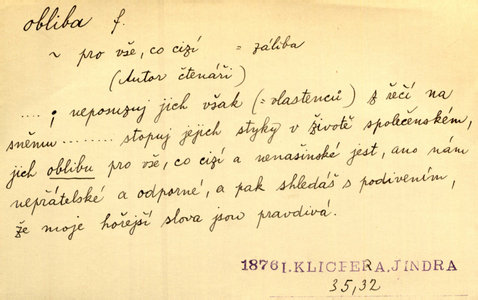 obliba f.
~ pro vše, co cizí = záliba
(Autor čtenáři)
.... ; neposuzuj jich však (= vlastenců) z řečí na
sněmu ......... stopuj jejich styky v životě společenském,
jich oblibu pro vše, co cizí a nenašinské jest, ano nám
nepřátelské a odporné, a pak shledáš s podivením,
že moje hořejší slova jsou pravdivá.
1876 I. KLICPERA, JINDRA
35,32